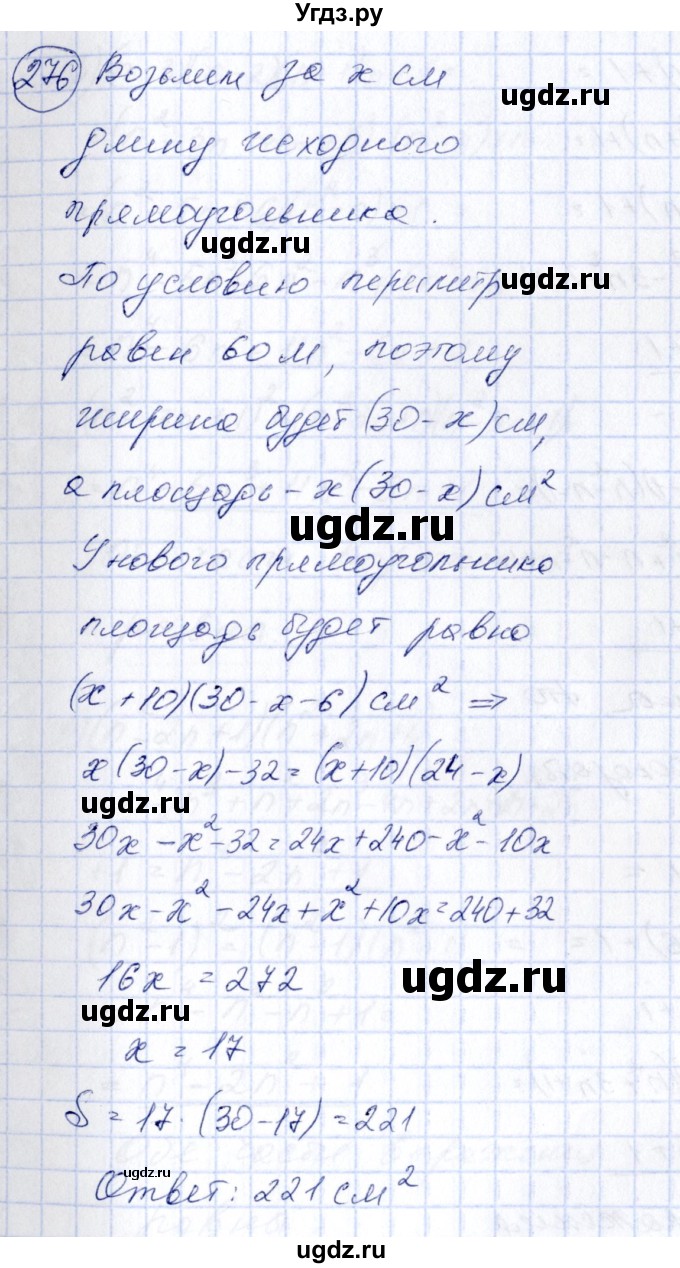 Угдз.ру
276 Возьмем за x см
ugdz.ru
длину исходного
прямоугольника.
ugdz.ru
По условию периметр
ugdz.ru
равен 60 м, поэтому
ширина будет (30 - x) см,
а площадь - x(30 - x) см²
ugdz.ru
У нового прямоугольника
площадь будет равна
(x + 10)(30 - x - 6) см² ⇒
x(30 - x) - 32 = (x + 10)(24 - x)
ugdz.ru
30x - x² - 32 = 24x + 240 - x² - 10x
30x - x² - 24x + x² + 10x = 240 + 32
16x = 272
ugdz.ru
ugdz.ru
x = 17
S = 17 · (30 - 17) = 221
ugdz.ru
Ответ: 221 см²
ugdz.ru